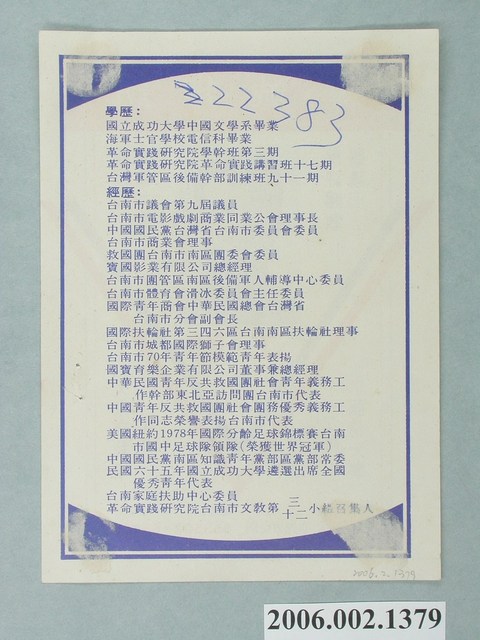 322383
學歷：
國立成功大學中國文學系畢業
海軍士官學校電信科畢業
革命實踐研究院學幹班第三期
革命實踐研究院革命實踐講習班十七期
台灣軍管區後備幹部訓練班九十一期
經歷：
台南市議會第九屆議員
台南市電影戲劇商業同業公會理事長
中國國民黨台灣省台南市委員會委員
台南市商業會理事
救國團台南市南區團委會委員
寶國影業有限公司總經理
台南市團管區南區後備軍人輔導中心委員
台南市體育會滑冰委員會主任委員
國際青年商會中華民國總會台灣省
台南市分會副會長
國際扶輪社第三四六區台南南區扶輪社理事
台南市城都國際獅子會理事
台南市70年青年節模範青年表揚
國寶育樂企業有限公司董事兼總經理
中華民國青年反共救國團社會青年義務工
作幹部東北亞訪問團台南市代表
中國青年反共救國團社會團務優秀義務工
作同志榮譽表揚台南市代表
美國紐約1978年國際分齡足球錦標賽台南
市國中足球隊領隊（榮獲世界冠軍）
中國國民黨南區知識青年黨部區黨部常委
民國六十五年國立成功大學遴選出席全國
優秀青年代表
台南家庭扶助中心委員
革命實踐研究院台南市文教第三十二小組召集人
2006.2.1379
2006.002.1379